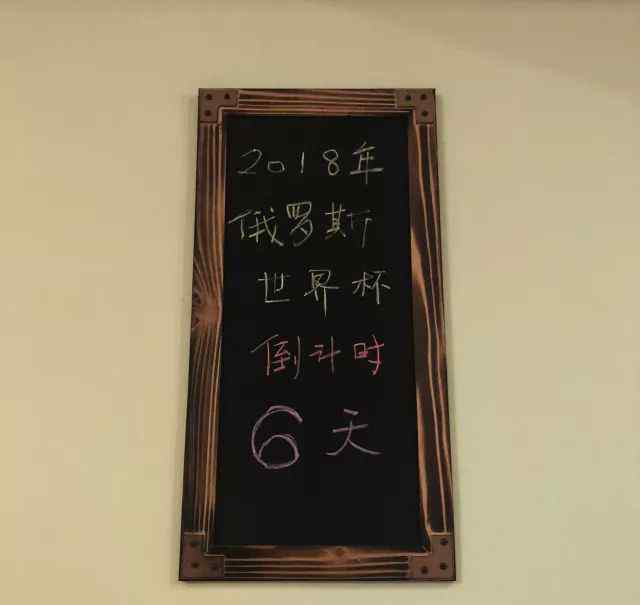 2018年
俄罗斯
世界杯
倒计时
6天